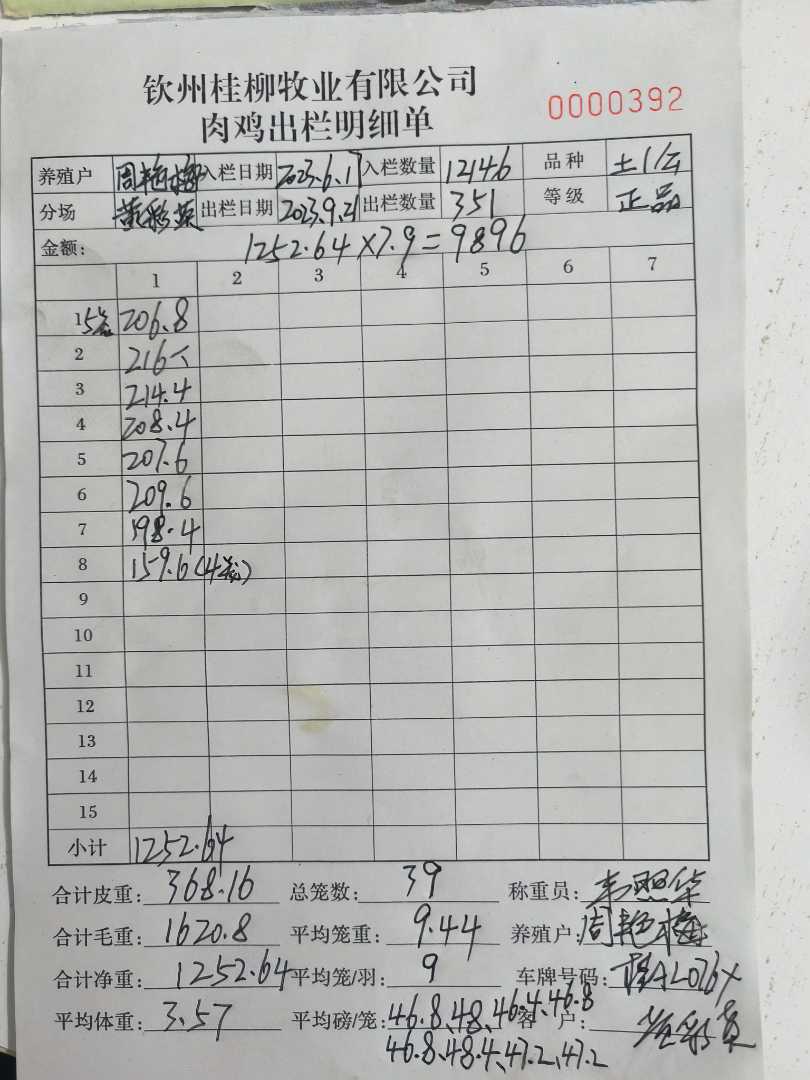 钦州桂柳牧业有限公司
肉鸡出栏明细单
0000392
养殖户 周艳梅 入栏日期 2023.6.17 入栏数量 12146 品种 土1/公
分场 黄彩英 出栏日期 2023.9.21 出栏数量 351 等级 正品
金额: 1252.64×7.9=9896
1 2 3 4 5 6 7
1 5笼 206.8
2 216
3 214.4
4 208.4
5 207.6
6 209.6
7 198.4
8 159.6(4笼)
9
10
11
12
13
14
15
小计 1252.64
合计皮重: 368.16 总笼数: 39 称重员: 韦照华
合计毛重: 1620.8 平均笼重: 9.44 养殖户: 周艳梅
合计净重: 1252.64 平均笼/羽: 9 车牌号码:
平均体重: 3.57 平均磅/笼: 46.8、48、46.4、46.8 客户:
46.8、48.4、47.2、47.2